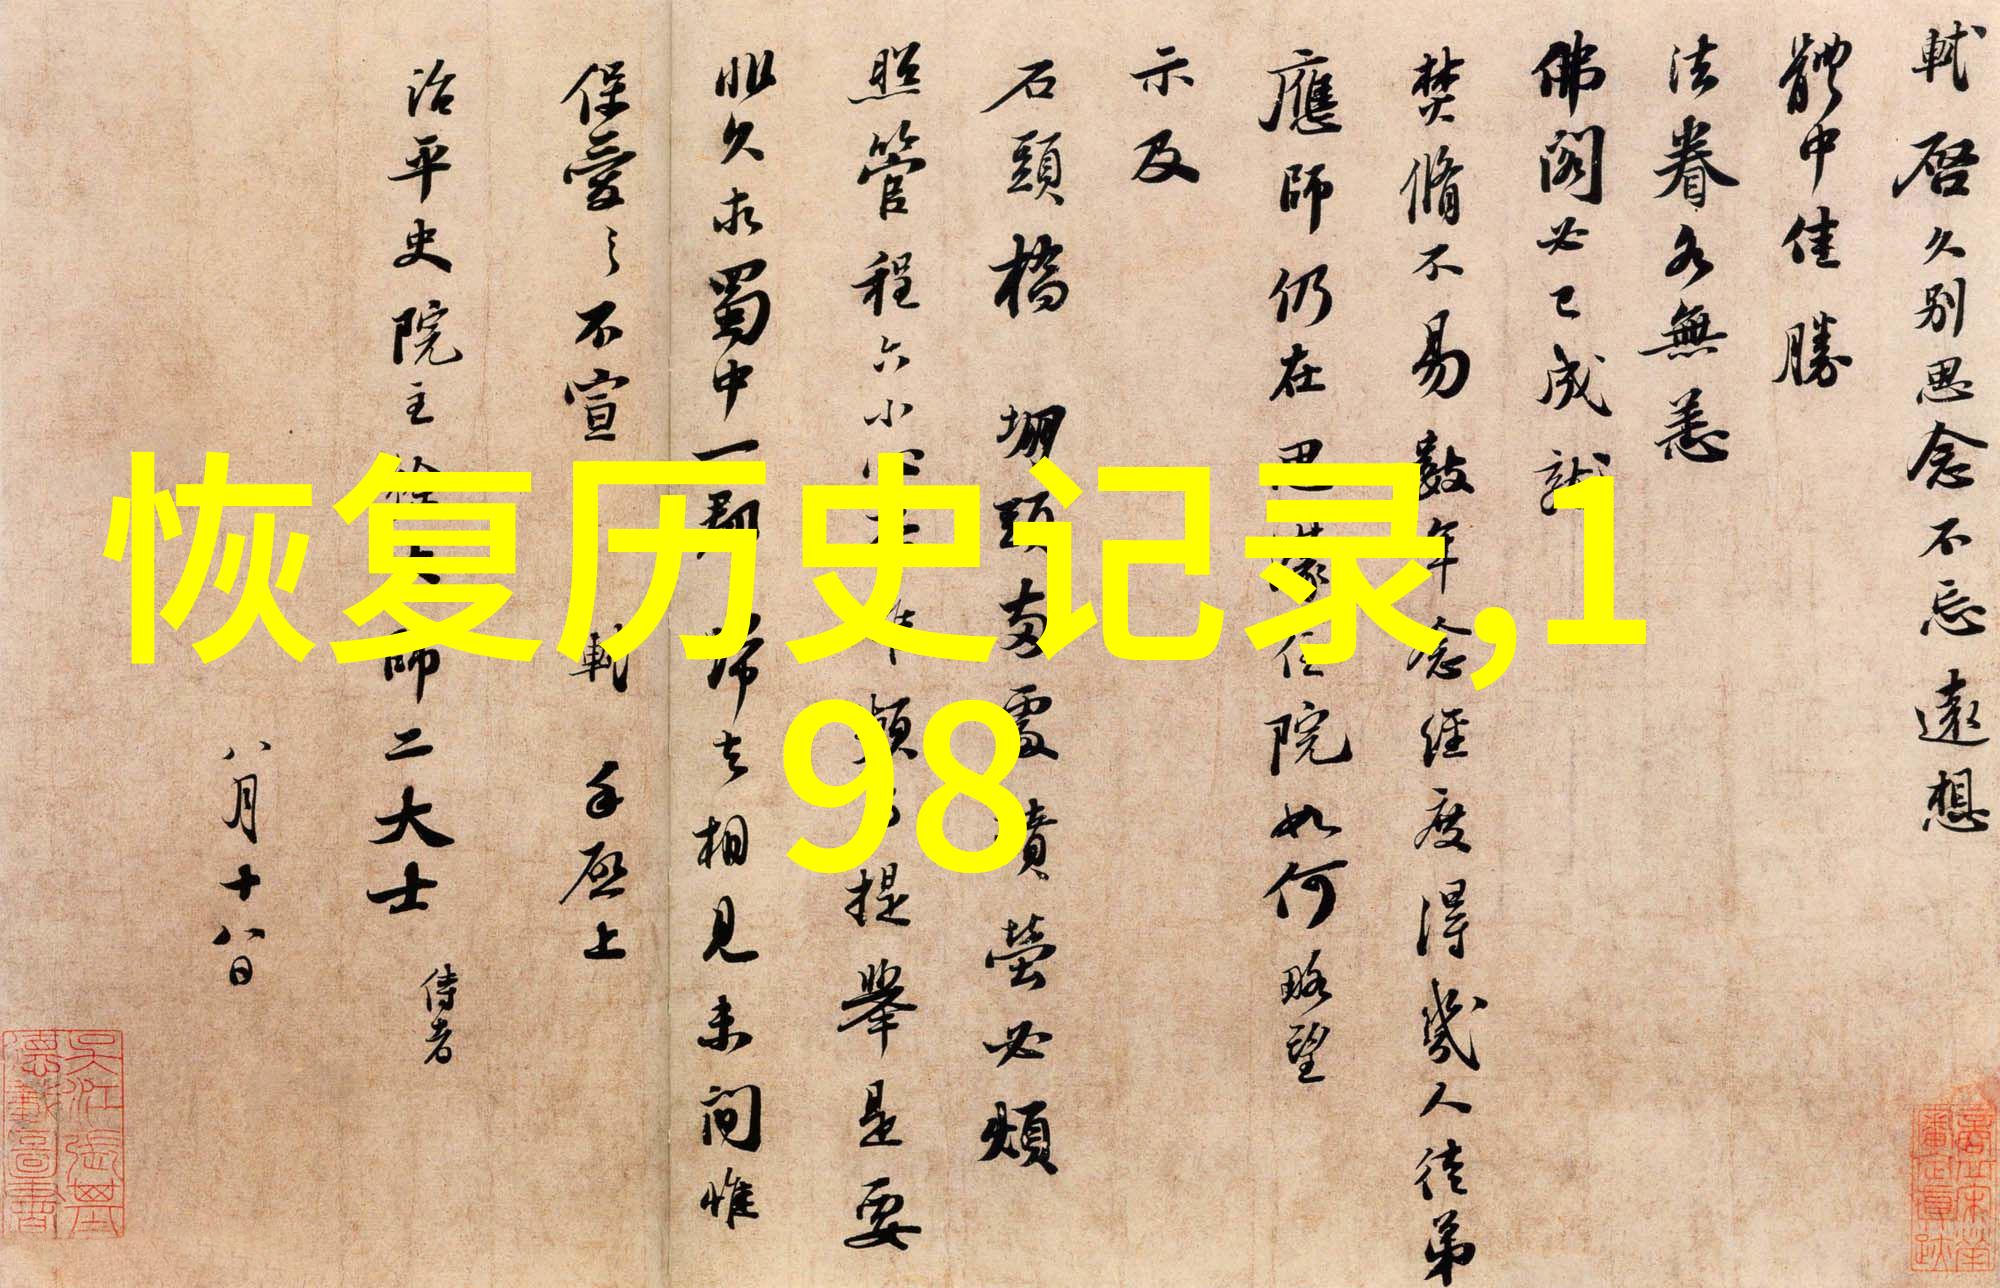 軾啓久别思念不忘遠想
體中佳勝
法眷各無恙
佛閣必已成就
焚脩不易數年念經度得幾人徒弟
應師仍在思濛住院如何略望
示及
石頭橋堋頭兩處墳塋必煩
照管程六小心否惟頻與提舉是要
非久求蜀中一郡歸去相見未間惟
保愛之不宣 軾 手啓上
治平史院主徐大師二大士 侍者
八月十八日
恢复历史记录,1
98